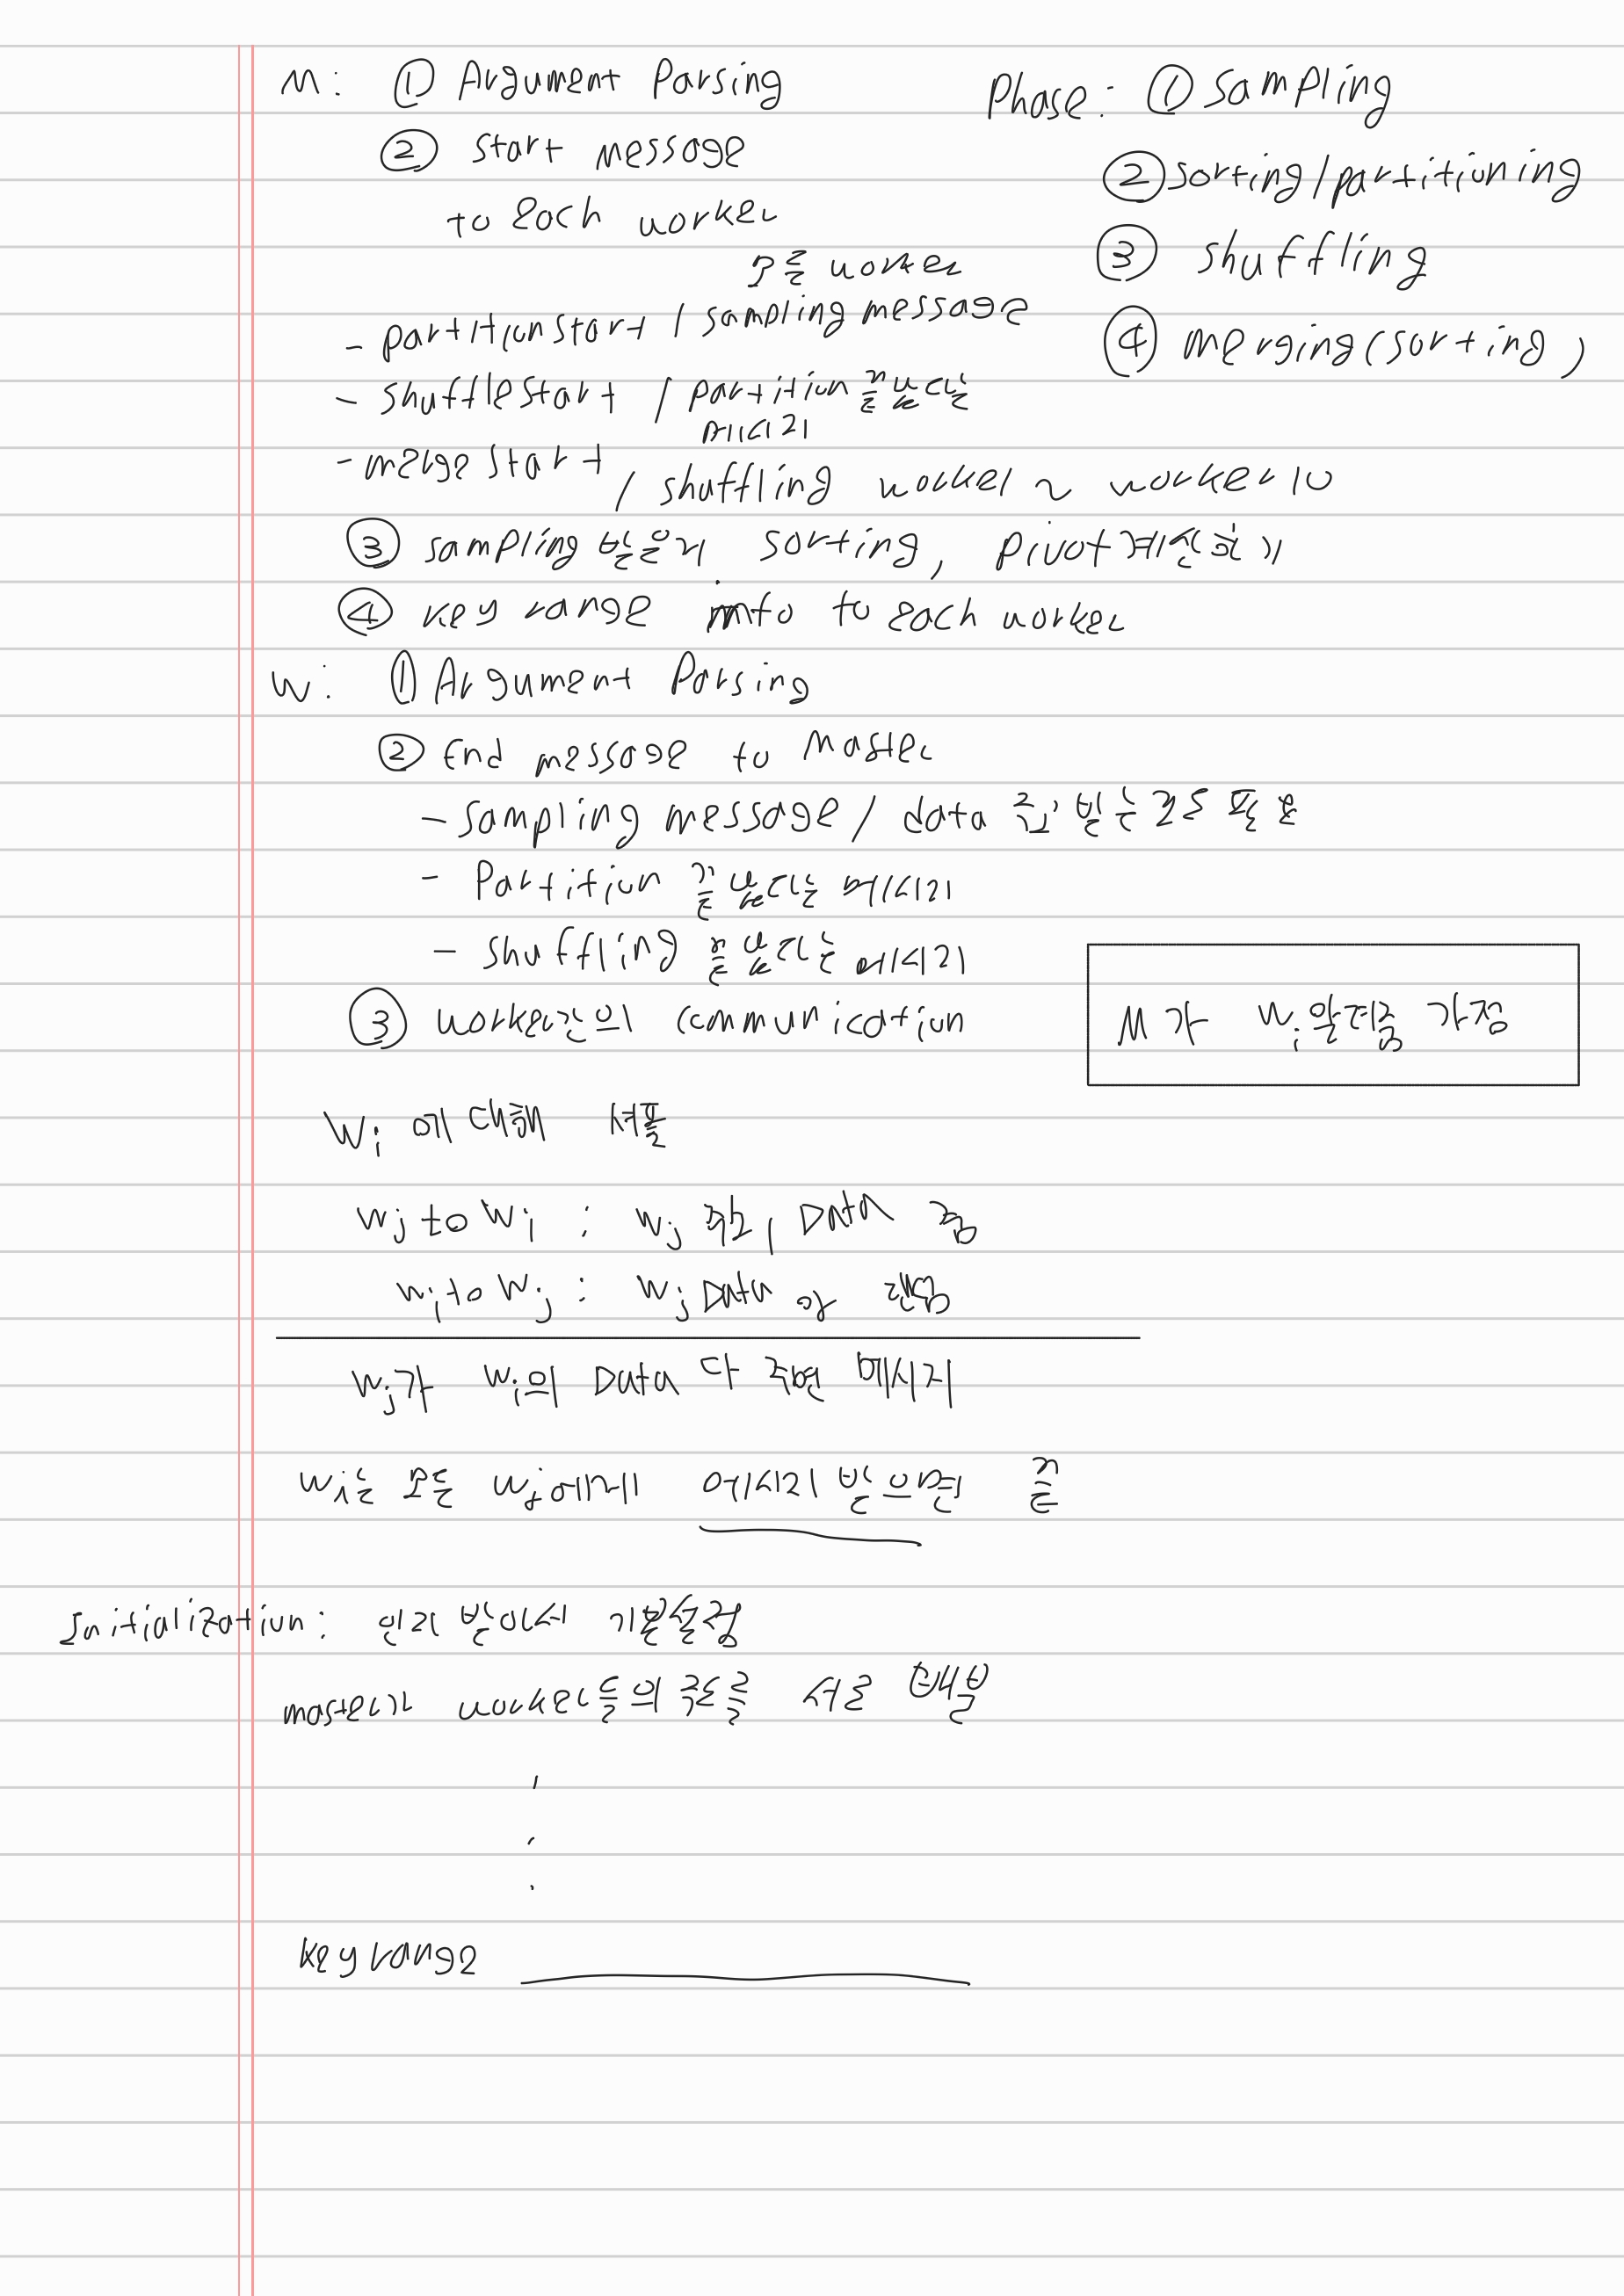 M: ① Argument Parsing
② start message
to each worker
모든 worker
- partition start / sampling message
- shuffle start / partition 끝났다는
메시지
- merge start / shuffling worker1 ~ worker10
③ sampling 받은거 sorting, pivot계산하기
④ key range info to each worker
Phase: ① sampling
② sorting/partitioning
③ shuffling
④ merging(sorting)
W: ① Argument Parsing
② End message to Master
- Sampling message / data
- Partition 끝났다는 메시지
- shuffling 끝났다는 메시지
③ worker간의 communication
M 가 Wi 알려줌 가정
Wi 에 대해 셔플
Wj to Wi : Wj Data 줌
Wi to Wj : Wj Data
Wj가 Wi의 Data 다 주면 메시지
Wi는 모든 Wj에게 메시지 받으면 끝
Initialization: 인자 받아서 기본설정
master가 worker들의 주소를 서로
key range